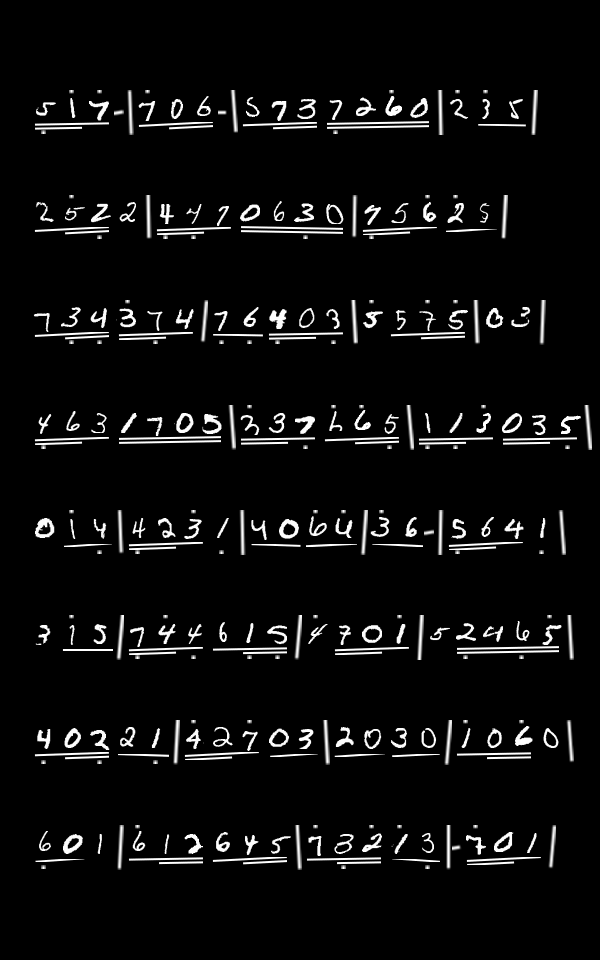 5 1 7 - | 7 0 6 - | 5 7 3 7 2 6 0 | 2 3 5 |
2 5 2 2 | 4 4 7 0 6 3 0 | 9 5 6 2 5 |
7 3 4 3 7 4 | 7 6 4 0 3 | 5 5 7 5 | 0 3 |
4 6 3 1 7 0 5 | 2 3 7 6 6 5 | 1 1 3 0 3 5 |
0 1 4 | 4 2 3 1 | 4 0 6 4 | 3 6 - | 5 6 4 1 |
3 1 5 | 7 4 4 6 1 5 | 4 7 0 1 | 5 2 4 6 5 |
4 0 2 2 1 | 4 2 7 0 3 | 2 0 3 0 | 1 0 6 0 |
6 0 1 | 6 1 2 6 4 5 | 7 3 2 1 3 | - 7 0 1 |